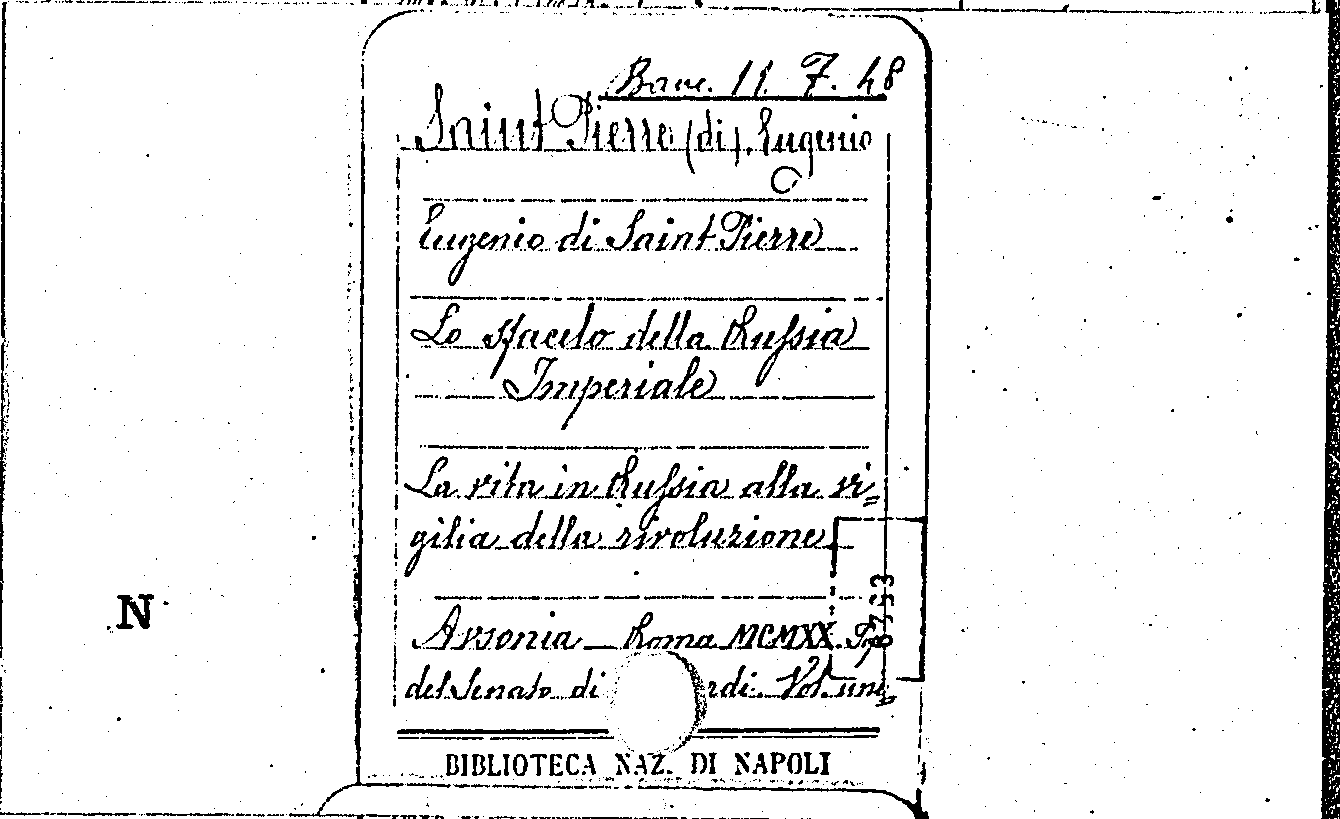 Banc. 11. F. 48
Saint Pierre (di). Eugenio
Eugenio di Saint Pierre
Lo sfacelo della Russia
Imperiale
La vita in Russia alla vi=
gilia della rivoluzione
Ausonia – Roma MCMXX. Tip
del Senato di rdi. Vol. un=
8753
N
BIBLIOTECA NAZ. DI NAPOLI